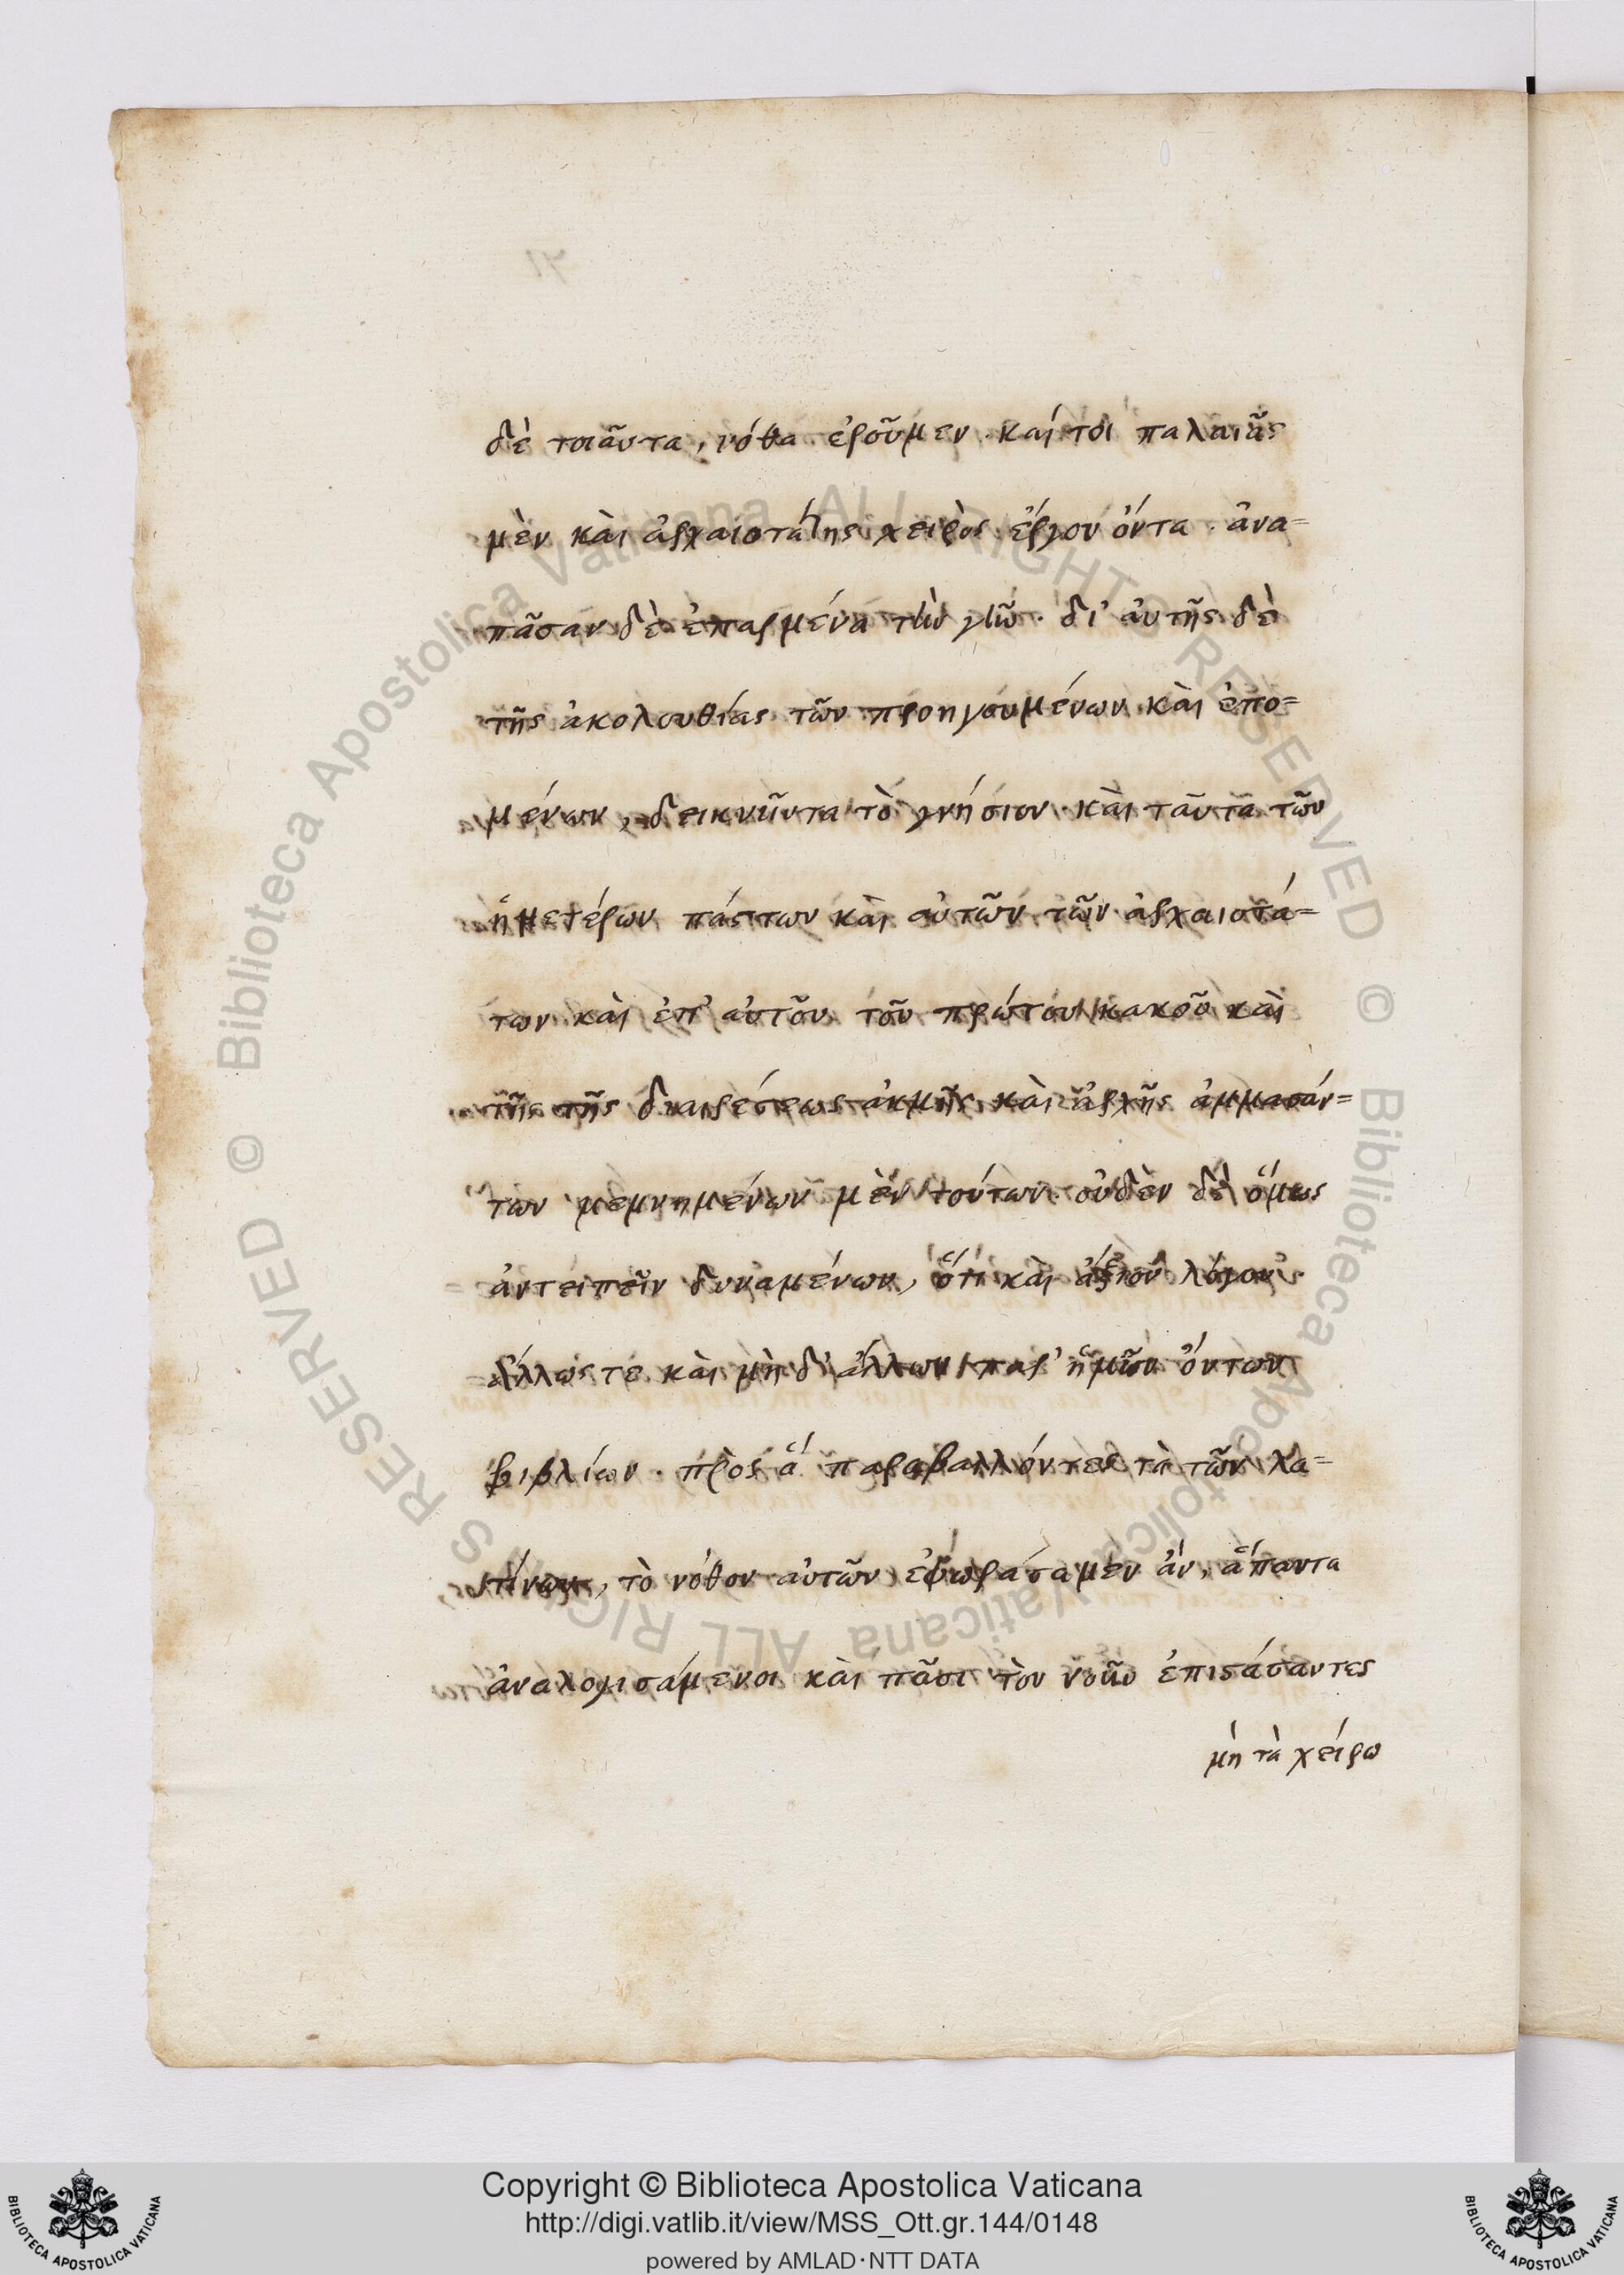 δὲ τοιαῦτα, νόθα ἐροῦμεν. καί τοι παλαιᾶς
μὲν καὶ ἀρχαιοτάτης χειρὸς ἔργον ὄντα. ἀνα=
πᾶσαν δὲ ἐπαρμένα τὴν γῆν. δι' αὐτῆς δὲ
τῆς ἀκολουθίας τῶν προηγουμένων καὶ ἑπο=
μένων, δεικνῦντα τὸ γνήσιον. καὶ ταῦτα τῶν
ἡμετέρων πάντων καὶ αὐτῶν τῶν ἀρχαιοτά=
των καὶ ἐπ' αὐτοῦ τοῦ πρώτου κακοῦ καὶ
τῆς τῆς διαιρέσεως ἀκμῆς καὶ ἀρχῆς
των μεμνημένων μὲν τούτων. οὐδὲν δὲ ὅμως
ἀντειπεῖν δυναμένων, ὅτι καὶ ἄξιον λόγου.
ἄλλως τε καὶ μὴ δ' ἄλλων παρ' ἡμῖν ὄντων
βιβλίων. πρὸς ἃ παραβαλλόντες τὰ τῶν λα=
τίνων, τὸ νόθον αὐτῶν ἐφωράσαμεν ἄν, ἅπαντα
ἀναλογισάμενοι καὶ πᾶσι τὸν νοῦν ἐπιστάσαντες
μὴ τὰ χείρω
© Biblioteca Apostolica Vaticana ALL RIGHTS RESERVED © Biblioteca Apostolica Vaticana ALL RIGHTS RESERVED
Copyright © Biblioteca Apostolica Vaticana
http://digi.vatlib.it/view/MSS_Ott.gr.144/0148
powered by AMLAD·NTT DATA
BIBLIOTECA APOSTOLICA VATICANA
BIBLIOTECA APOSTOLICA VATICANA